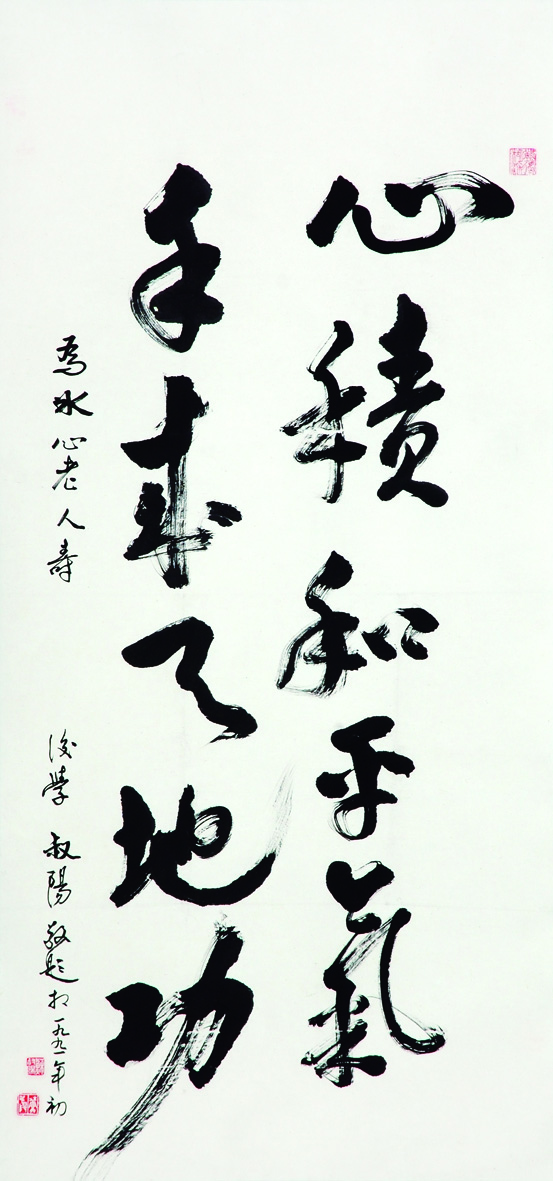 心積和平氣
手成天地功
為水心老人壽
後學 叔陽敬題於一九九一年初